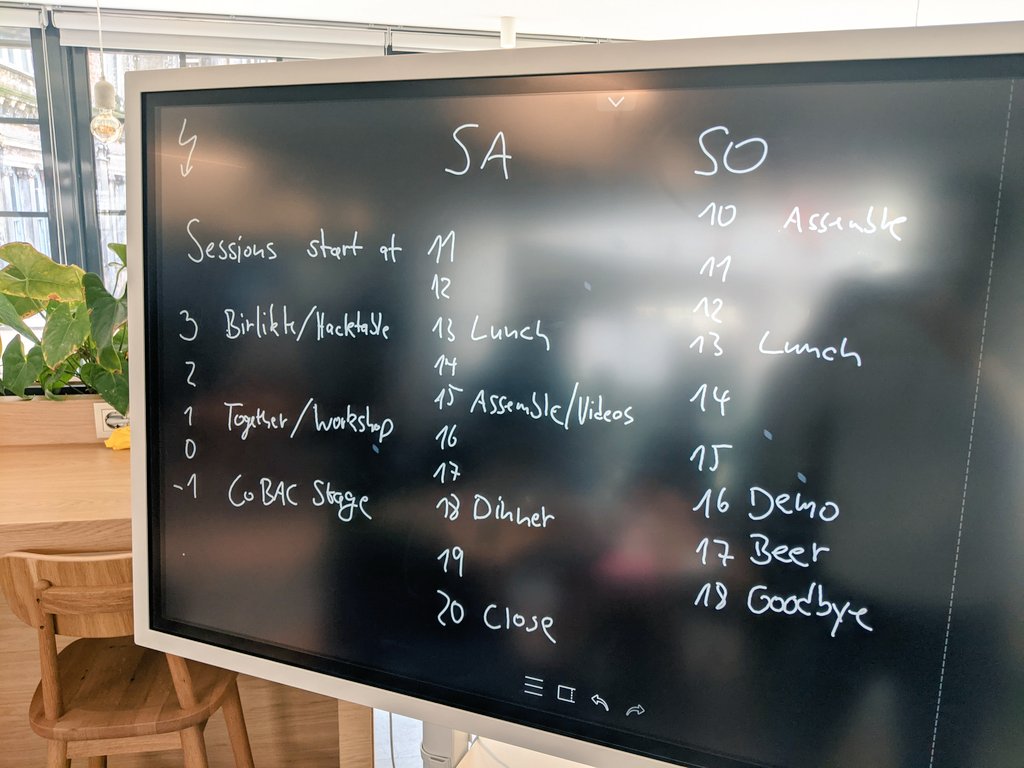 SA SO
10 Assemble
Sessions start at 11 11
12 12
3 Birlikte/Hacktable 13 Lunch 13 Lunch
2 14 14
1 Together/Workshop 15 Assemble/Videos 15
0 16 16 Demo
-1 CoBAC Stage 17 17 Beer
18 Dinner 18 Goodbye
19
20 Close